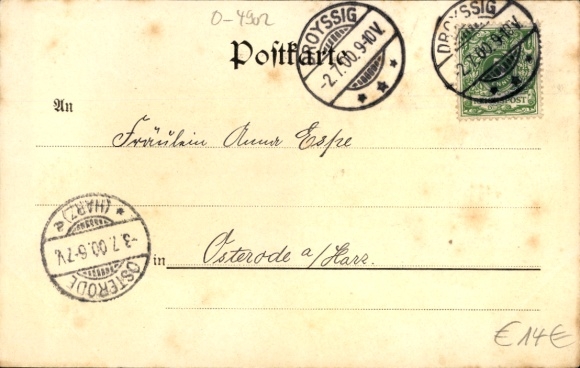 O-4902
Postkarte
DROYSSIG
-2.7.00.9-10V.
DROYSSIG
-2.7.00.9-10V.
An
Fräulein Anna Espe
OSTERODE
(HARZ) a
-3.7.00.6-7V.
in
Osterode a/Harz.
€ 14€